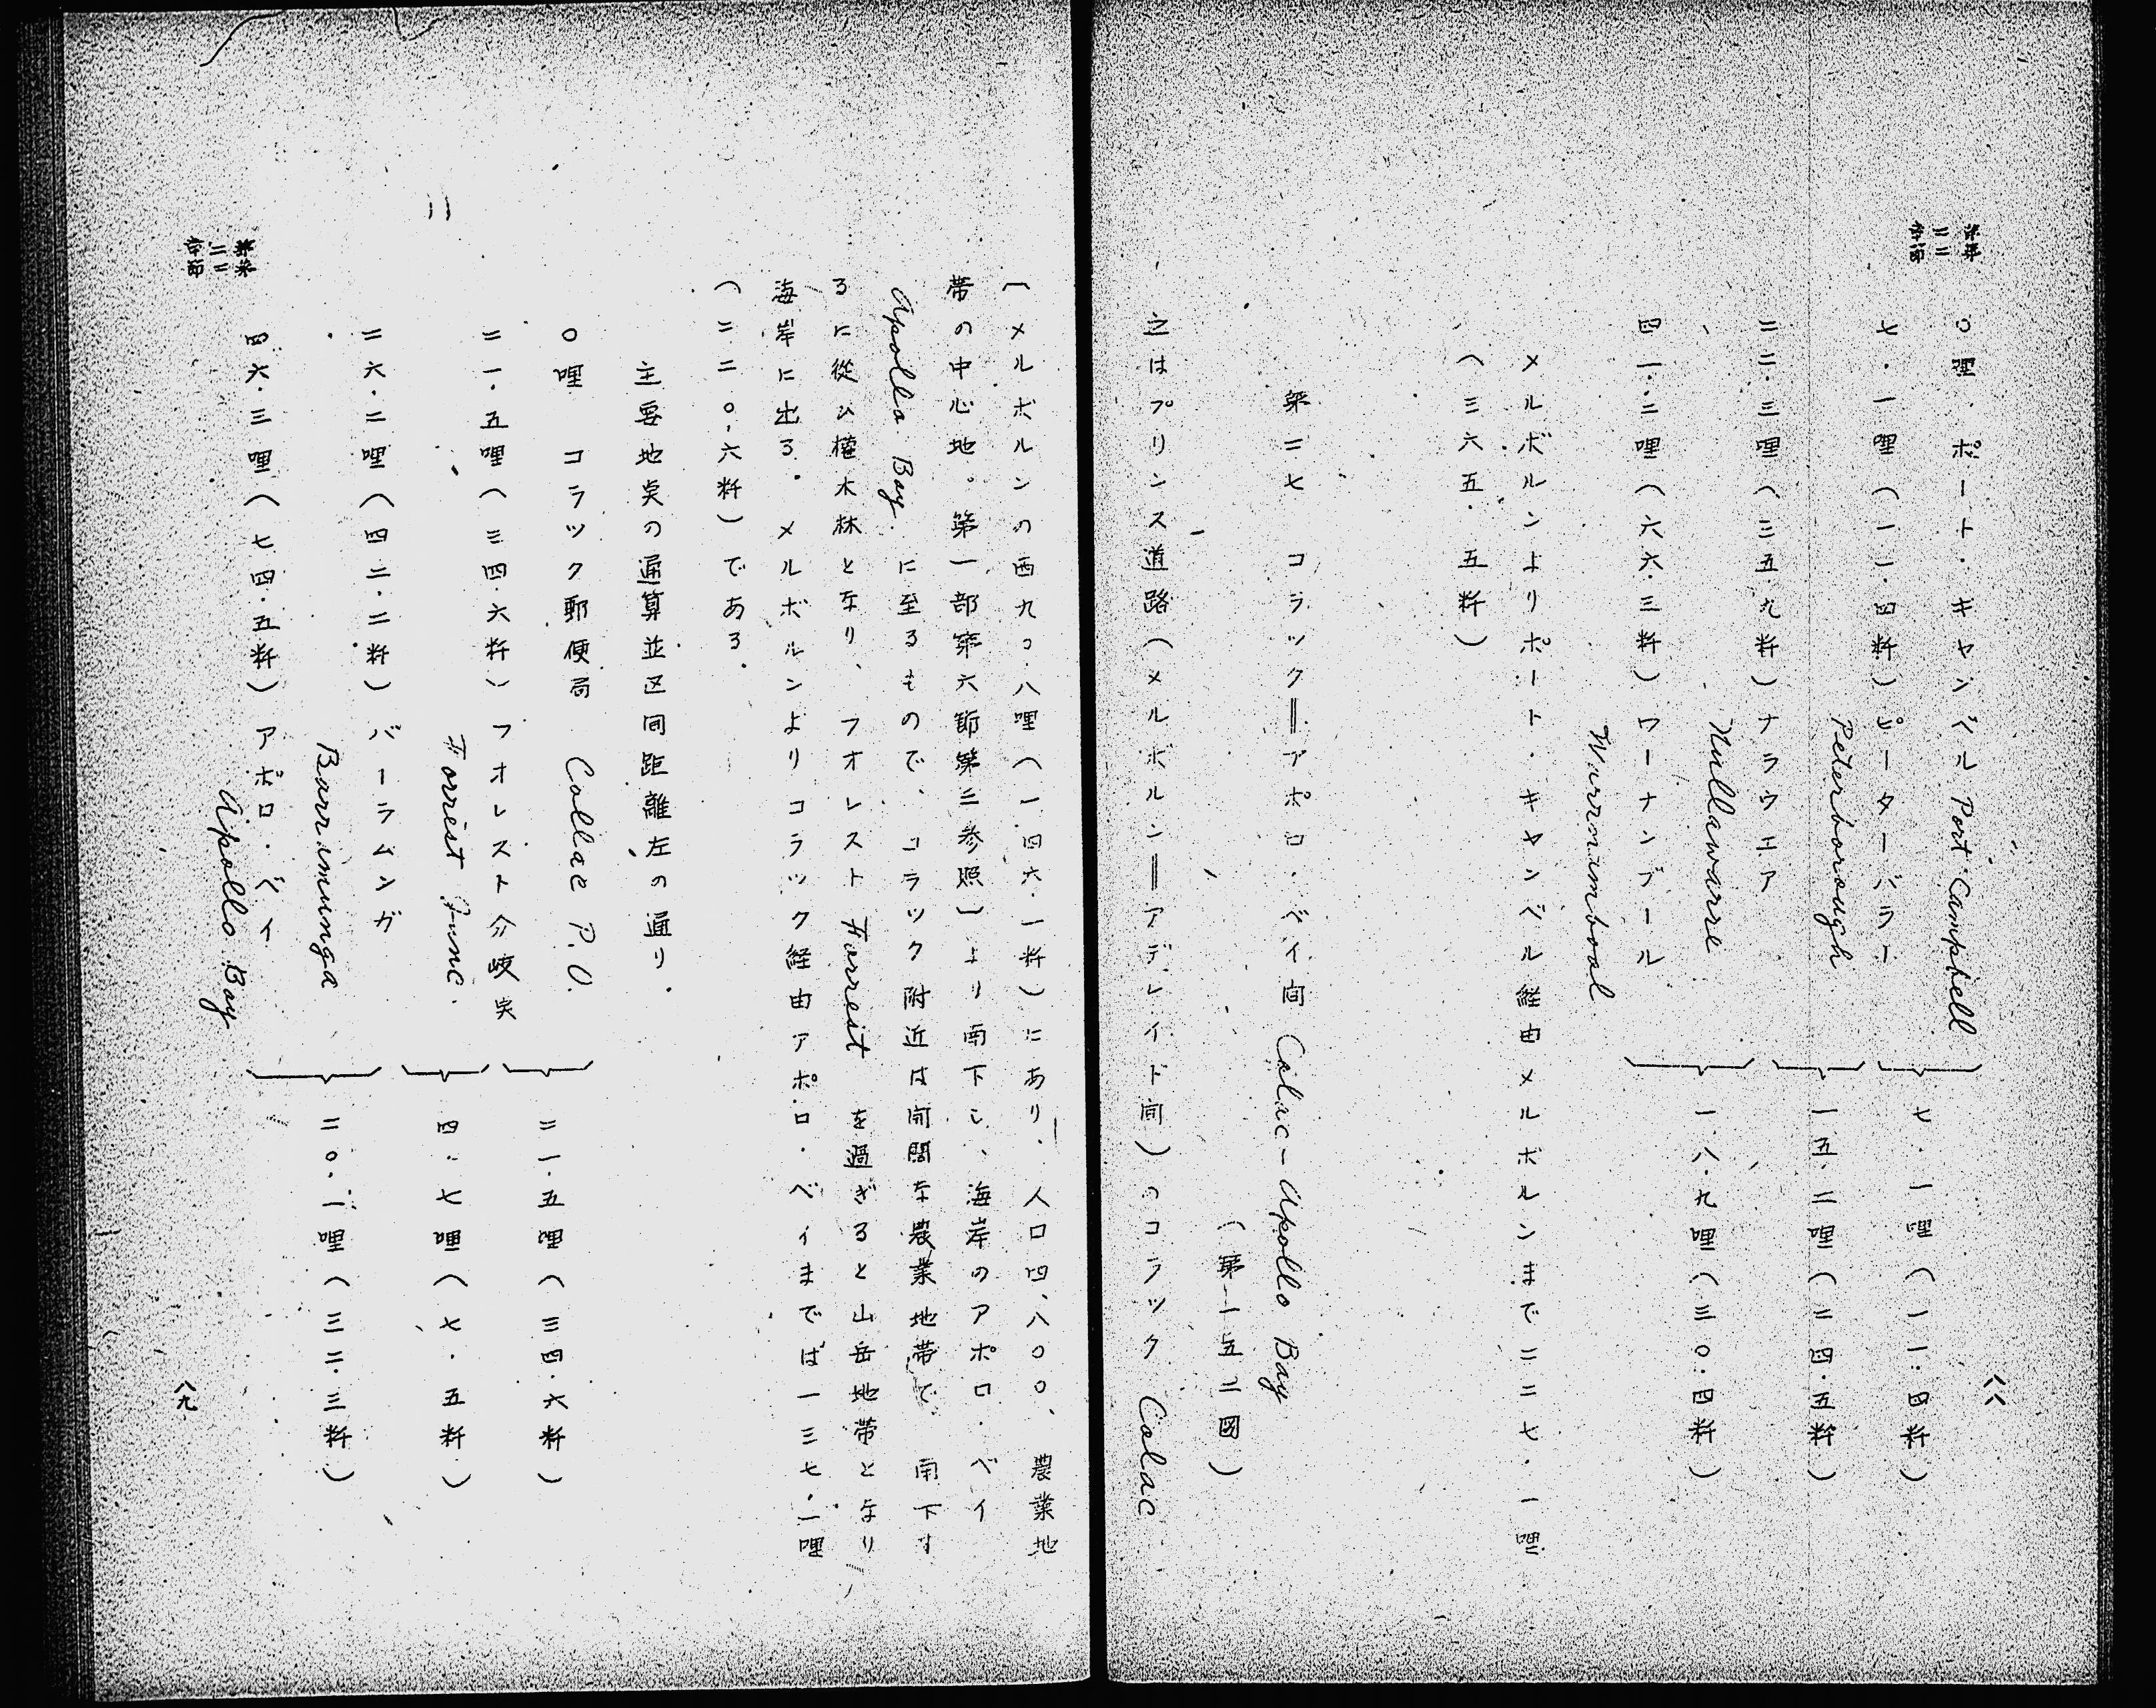 八八
〇哩 ポート・キャンベル Port Campbell
七・一哩(一一・四粁)ピーターバラー
Peterborough
二二・三哩(三五九粁)ナラウエア
Nullawarre
四一・二哩(六六・三粁)ワーナンブール
Warrnambool
七・一哩(一一・四粁)
一五・二哩(二四・五粁)
一八・九哩(三〇・四粁)
メルボルンよりポート・キャンベル経由メルボルンまで二二七・一哩
(三六五・五粁)
第二七 コラック=アポロ・ベイ間 Colac-Apollo Bay
(第一五二図)
之はプリンス道路(メルボルン=アデレイド間)のコラック Colac
(メルボルンの西九〇・八哩(一四六・一粁)にあり、人口四、八〇〇、農業地
帯の中心地。第一部第六節第三参照)より南下し、海岸のアポロ・ベイ
Apollo Bay に至るもので、コラック附近は開闊な農業地帯で 南下す
るに從ひ灌木林となり、フオレスト Forrest を過ぎると山岳地帯となり
海岸に出る。メルボルンよりコラック経由アポロ・ベイまでは一三七・一哩
(二二〇・六粁)である。
主要地点の通算並区間距離左の通り。
〇哩 コラック郵便局 Collac P.O.
二一・五哩(三四・六粁)フオレスト分岐点
Forrest Junc.
二六・二哩(四二・二粁)バーラムンガ
Barramunga
四六・三哩(七四・五粁)アポロ・ベイ
Apollo Bay
二一・五哩(三四・六粁)
四・七哩(七・五粁)
二〇・一哩(三二・三粁)
八九